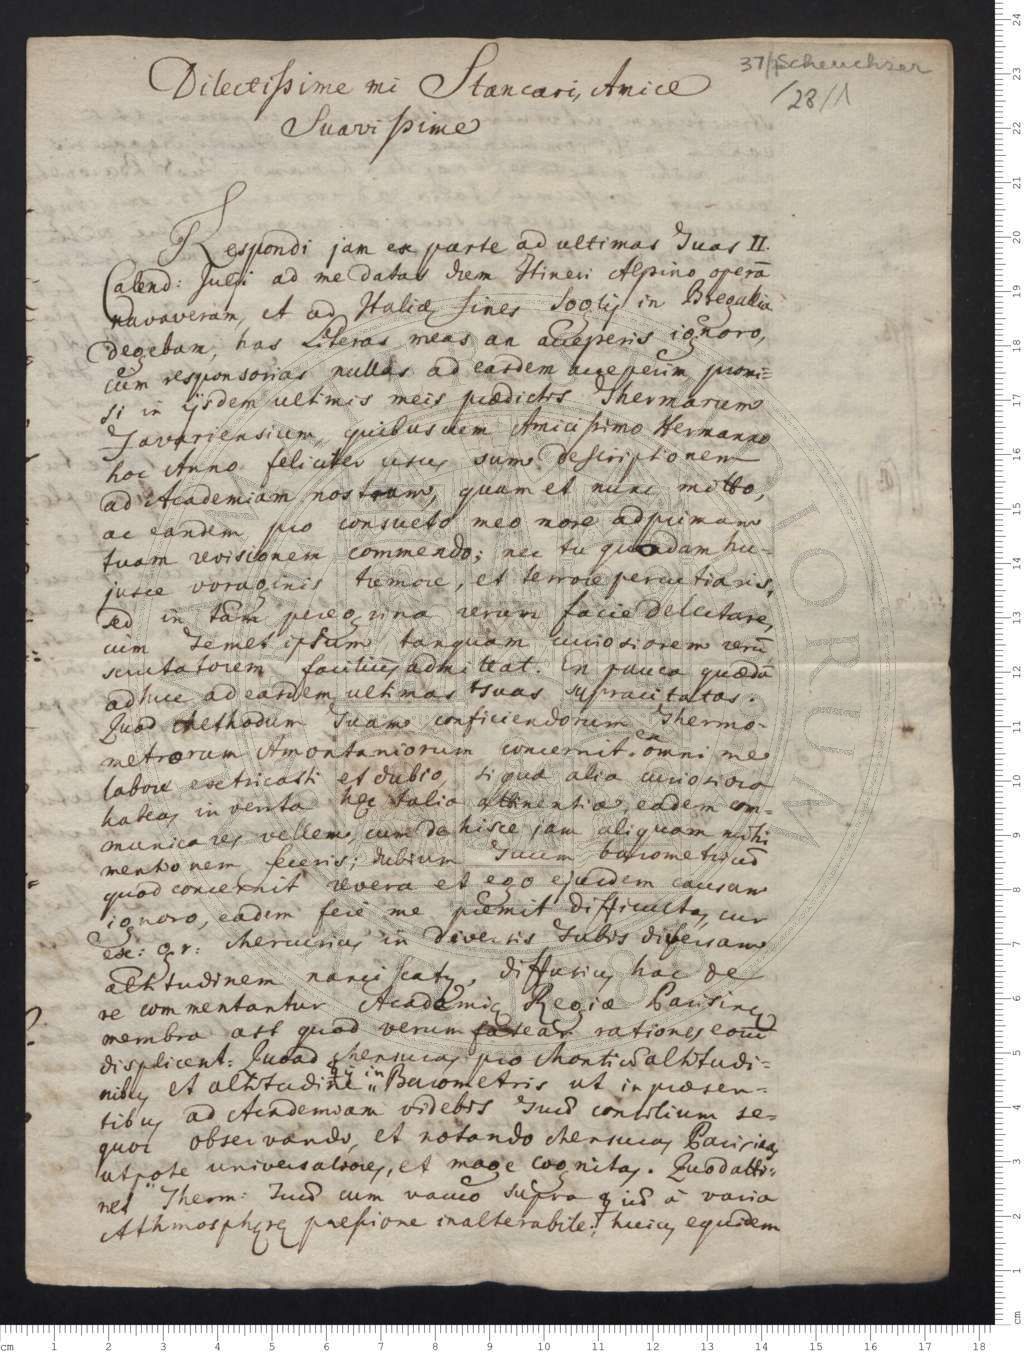 37/Scheuchzer
28/1
Dilectissime mi Stancari, Amice
Suavissime
Respondi jam ex parte ad ultimas Tuas II.
Calend: Julii ad me datas dum Itineri Alpino operā
navaveram, et ad Italiæ fines Soglij in Bregallia
degebam, has Literas meas an acceperis ignoro,
cum responsorias nullas ad easdem acceperim promi=
si in ijsdem ultimis meis prædictis Thermarum
Favariensium, quibus cum Amicissimo Hermanno
hoc Anno feliciter usus sum descriptionem
ad Academiam nostram, quam et nunc mitto,
ac eandem pro consueto meo more ad primam
tuam revisionem commendo; nec tu quondam hu-
jusce voraginis tremore, et terrore percutiaris,
sed in tam peregrina rerum facie delectare,
cum Temet ipsum tanquam curiosiorem rerū
scrutatorem facilius admittat. In pauca quædā
adhuc ad easdem ultimas tuas supracitatas.
Quod Methodum Tuam conficiendorum Thermo-
metrorum Amontaniorum concernit, ex omni me
labore extricasti et dubio, si qua alia curiosiora
habeas inventa hęc talia attinentia, eadem com-
municares vellem, cum de hisce jam aliquam mihi
mentionem feceris; dubium Tuum barometricū
quod concernit revera et ego ejusdem causam
ignoro, eadem ferè me premit difficultas, cur
ex: gr: Mercurius in diversis Tubis diversam
altitudinem nanciscatur, diffusius hac de
re commentantur Academię Regiæ Parisinę
membra ast quod verum fatear rationes eorū
displicent: Quoad Mensuras pro Montiū altitudi=
nibus et altitudine ☿ij in Barometris ut in præsen-
tibus ad Academiam videbis Tuū consilium se-
quor observando, et notando Mensuras Parisinas
utpote universaliores, et mage cognitas. Quod atti=
net Therm: Tuū cum vacuo supra ☿iū à varia
Athmosphęrę pressione inalterabile; hujus equidem